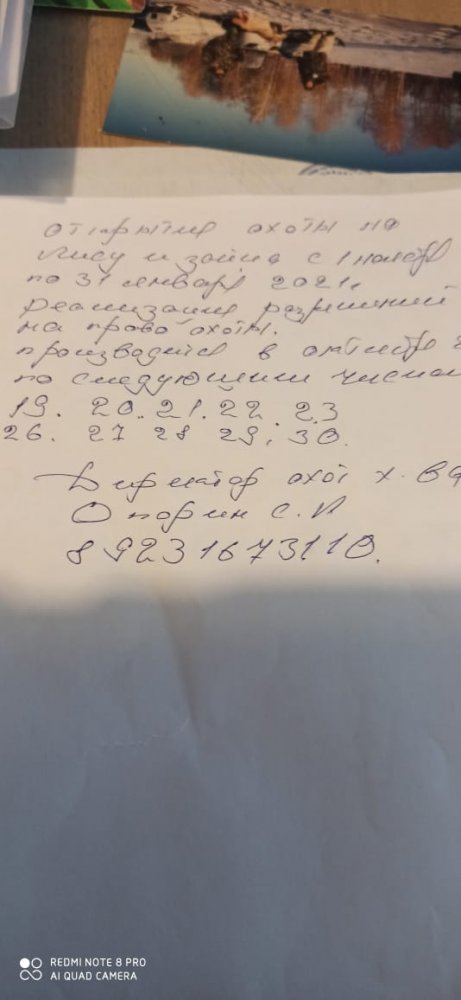 открытие охоты на
лису и зайца с 1 ноября
по 31 января 2021г.
Реализация разрешений
на право охоты.
производится в октябре
по следующим числам
19. 20. 21. 22. 23
26. 27 28 29; 30.
Директор охот х.
Опарин С.И
89231673110.
REDMI NOTE 8 PRO
AI QUAD CAMERA